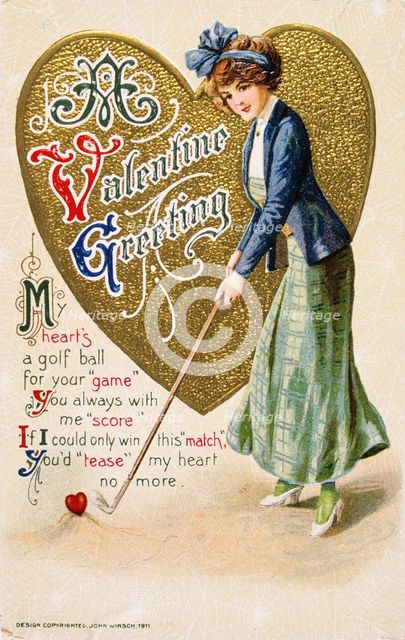 A
Valentine
Greeting
My
heart's
a golf ball
for your "game"
You always with
me "score"
If I could only win this "match",
You'd "tease" my heart
no more.
DESIGN COPYRIGHTED, JOHN WINSCH, 1911.
Heritage
Heritage
Heritage
Heritage
Heritage
Heritage